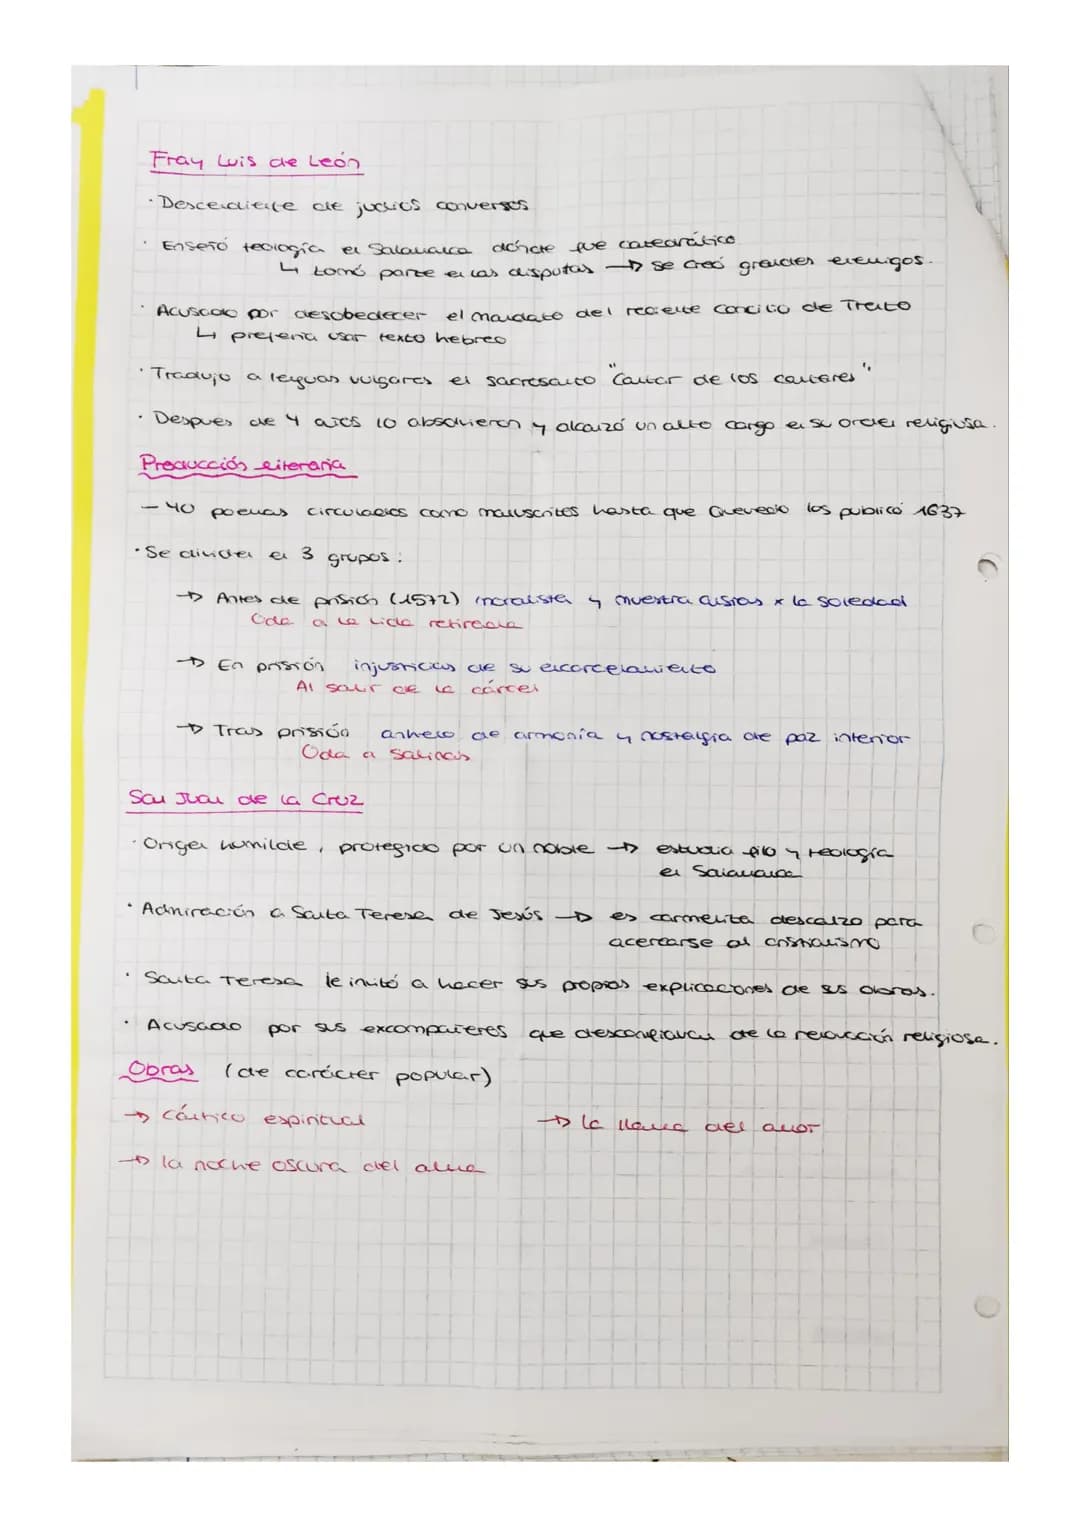 Fray Luis de León
· Descendiente de judíos conversos
· Enseñó teología en Salamanca dónde fue catedrático
↳ tomó parte en las disputas → se creó grandes enemigos.
· Acusado por desobedecer el mandato del reciente concilio de Trento
↳ prefería usar texto hebreo
· Tradujo a lenguas vulgares el sacrosanto "Cantar de los cantares".
· Después de 4 años lo absolvieron y alcanzó un alto cargo en su orden religiosa.
Producción literaria
- 40 poemas circulados como manuscritos hasta que Quevedo los publicó 1637
· Se dividen en 3 grupos:
→ Antes de prisión (1572) moralista y muestra ansias x la soledad
Oda a la vida retirada
→ En prisión injusticias de su encarcelamiento
Al salir de la cárcel
→ Tras prisión anhelo de armonía y nostalgia de paz interior
Oda a Salinas
San Juan de la Cruz
· Origen humilde, protegido por un noble → estudia filo y teología
en Salamanca
· Admiración a Santa Teresa de Jesús → es carmelita descalzo para
acercarse al cristianismo
· Santa Teresa le invitó a hacer sus propias explicaciones de sus obras.
· Acusado por sus excompañeros que desconfiaban de la renovación religiosa.
Obras (de carácter popular)
→ Cántico espiritual
→ la llama del amor
→ la noche oscura del alma